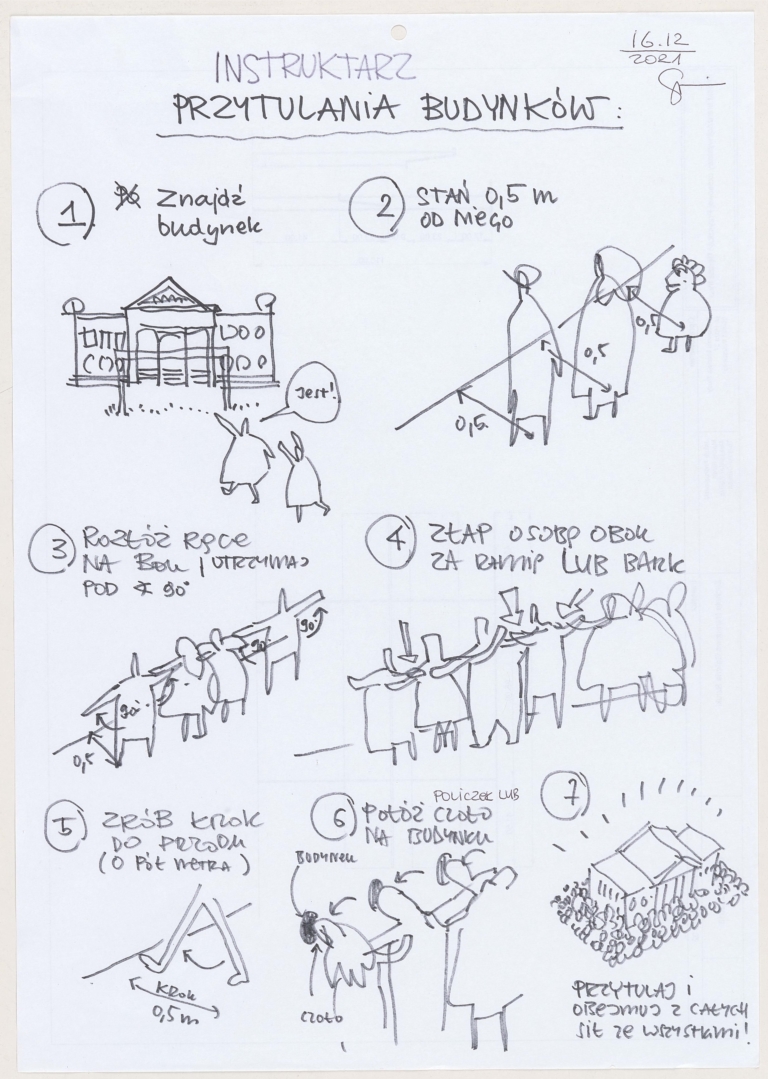 16.12
2021
INSTRUKTARZ
PRZYTULANIA BUDYNKÓW:
1 Znajdź
budynek
2 STAŃ 0,5 m
OD NIEGO
Jest!
0,5
0,5
0,5
3 ROZŁÓŻ RĘCE
NA BOKI UTRZYMAJ
POD ∢ 90°
90°
90°
90°
0,5
4 ZŁAP OSOBĘ OBOK
ZA RAMIĘ LUB BARK
5 ZRÓB KROK
DO PRZODU
(O PÓŁ METRA)
KROK
0,5 m
6 POLICZEK LUB
POŁÓŻ CZOŁO
NA BUDYNKU
BUDYNEK
CZOŁO
7
PRZYTULAJ I
OBEJMUJ Z CAŁYCH
SIŁ ZE WSZYSTKIMI!